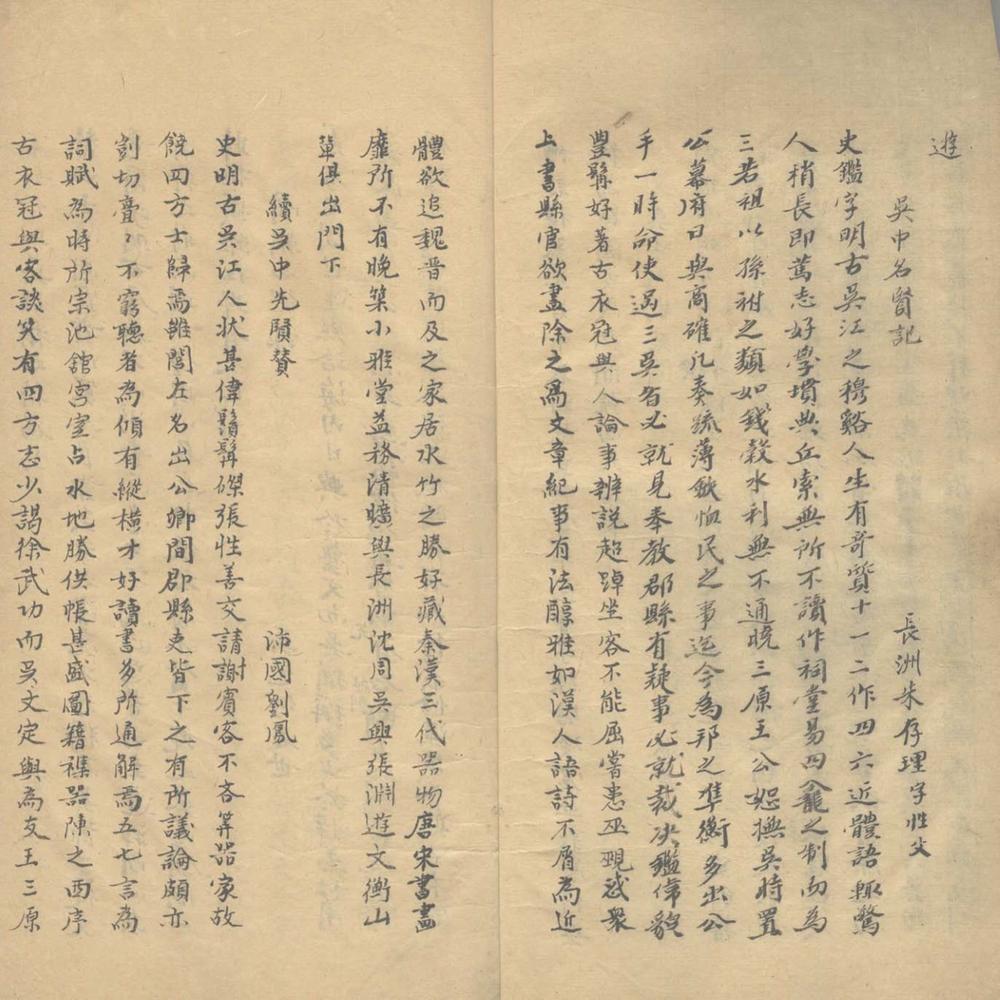 遊
吳中名賢記
長洲朱存理字性父
史鑑字明古吳江之穆谿人生有奇質十一二作四六近體語輒驚
人稍長即篤志好學墳典丘索無所不讀作祠堂易四龕之制而為
三若祖以孫祔之類如錢穀水利無不通曉三原王公恕撫吳時置
公幕府日與商確凡奏疏薄斂恤民之事迄今為邦之準衡多出公
手一時命使過三吳者必就見奉教郡縣有疑事必就裁决鑑偉貌
豐髯好著古衣冠與人論事辨說超踔坐客不能屈嘗患巫覡惑衆
上書縣官欲盡除之爲文章紀事有法醇雅如漢人語詩不屑為近
體欲追魏晉而及之家居水竹之勝好藏秦漢三代器物唐宋書畫
靡所不有晚築小雅堂益務清曠與長洲沈周吳興張淵遊文衡山
輩俱出門下
續吳中先賢贊
沛國劉鳳
史明古吳江人狀甚偉鬚髯磔張性善交請謝賓客不吝筭器家故
饒四方士歸焉雖閭左名出公卿間郡縣吏皆下之有所議論頗亦
剴切亹〻不窮聽者為傾有縱横才好讀書多所通解焉五七言為
詞賦為時所宗池舘宫室占水地勝供帳甚盛圖籍襍器陳之西序
古衣冠與客談笑有四方志少謁徐武功而吳文定與為友王三原